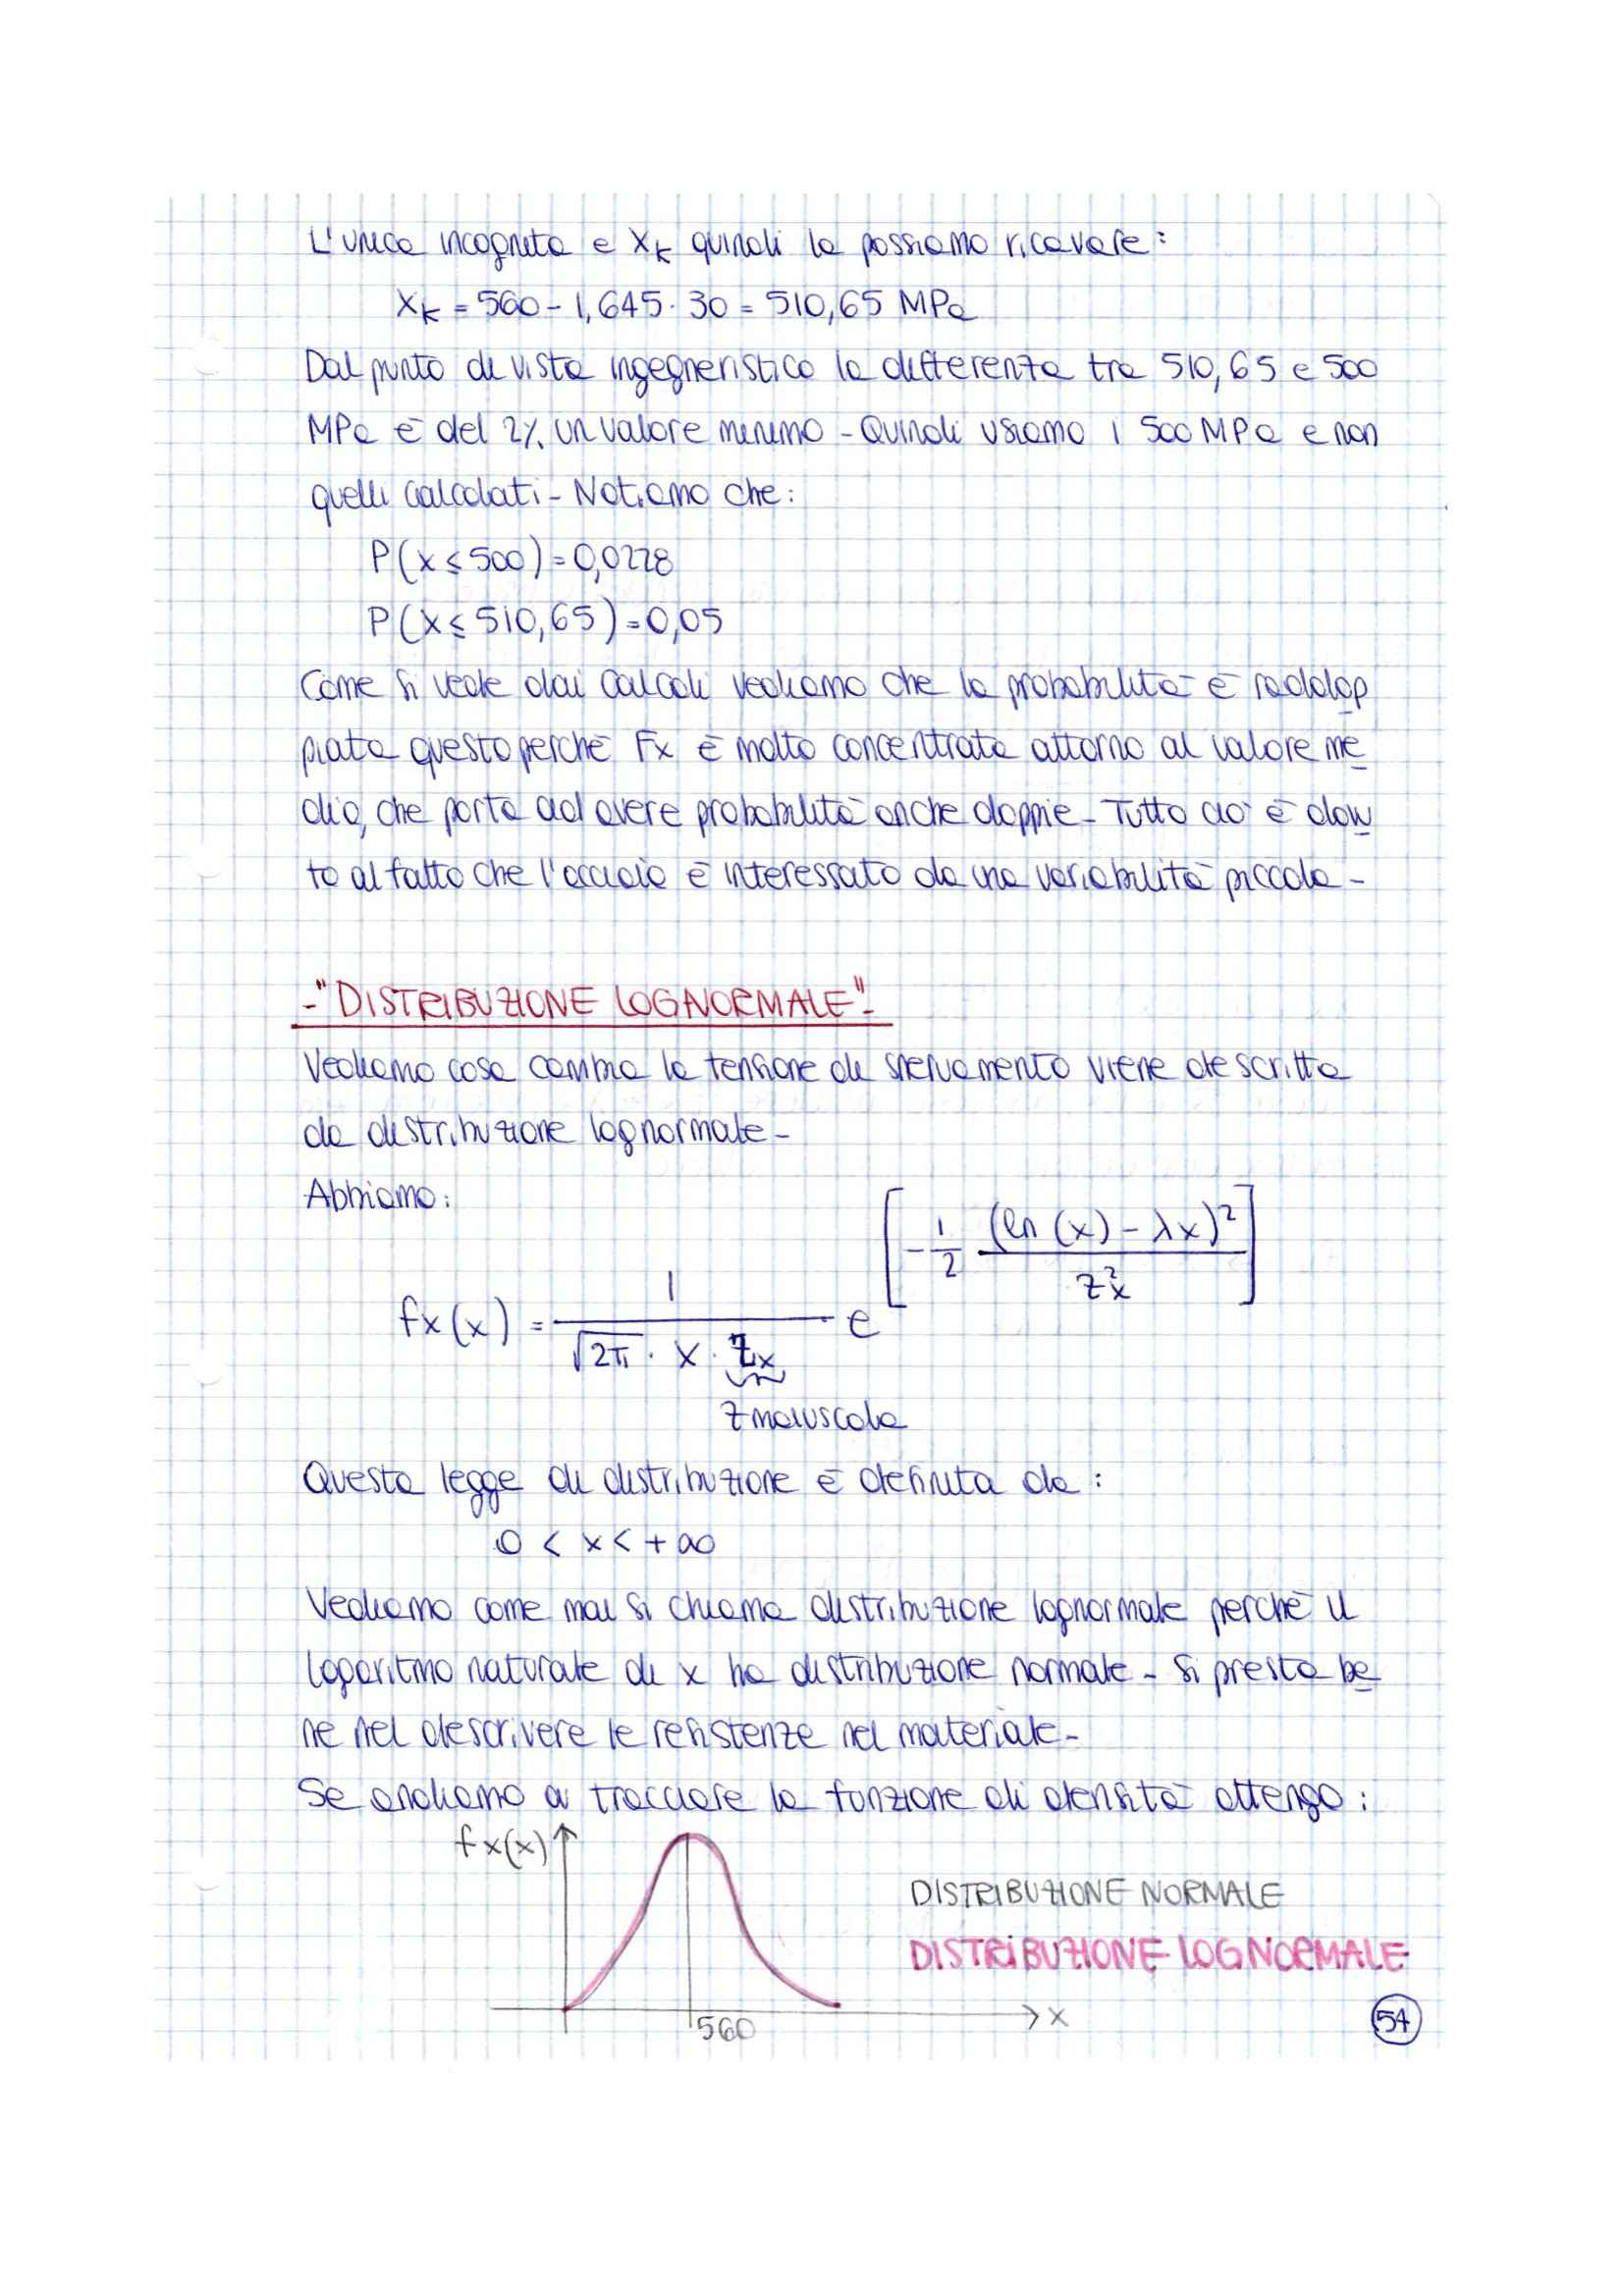 L'unica incognita e Xk quindi la possiamo ricavare:
Xk = 560 - 1,645 · 30 = 510,65 MPa
Dal punto di vista ingegneristico la differenza tra 510,65 e 500
MPa è del 2% un valore minimo - Quindi usiamo i 500 MPa e non
quelli calcolati - Notiamo che:
P(x ≤ 500) = 0,0228
P(x ≤ 510,65) = 0,05
Come si vede dai calcoli vediamo che la probabilità è raddop
piata questo perchè Fx è molto concentrata attorno al valore me
dio, che porta ad avere probabilità anche doppie - Tutto ciò è dovu
to al fatto che l'acciaio è interessato da una variabilità piccola -
-"DISTRIBUZIONE LOGNORMALE"-
Vediamo cosa cambia la tensione di snervamento viene descritta
da distribuzione lognormale -
Abbiamo:
fx(x) = 1 / (√2π · x · Zx) e [-1/2 (ln(x) - λx)² / Zx²]
Z maiuscola
Questa legge di distribuzione è definita da:
0 < x < +∞
Vediamo come mai si chiama distribuzione lognormale perchè il
logaritmo naturale di x ha distribuzione normale - Si presta be
ne nel descrivere le resistenze nel materiale -
Se andiamo a tracciare la funzione di densità ottengo:
fx(x)
DISTRIBUZIONE NORMALE
DISTRIBUZIONE LOGNORMALE
560
x
54